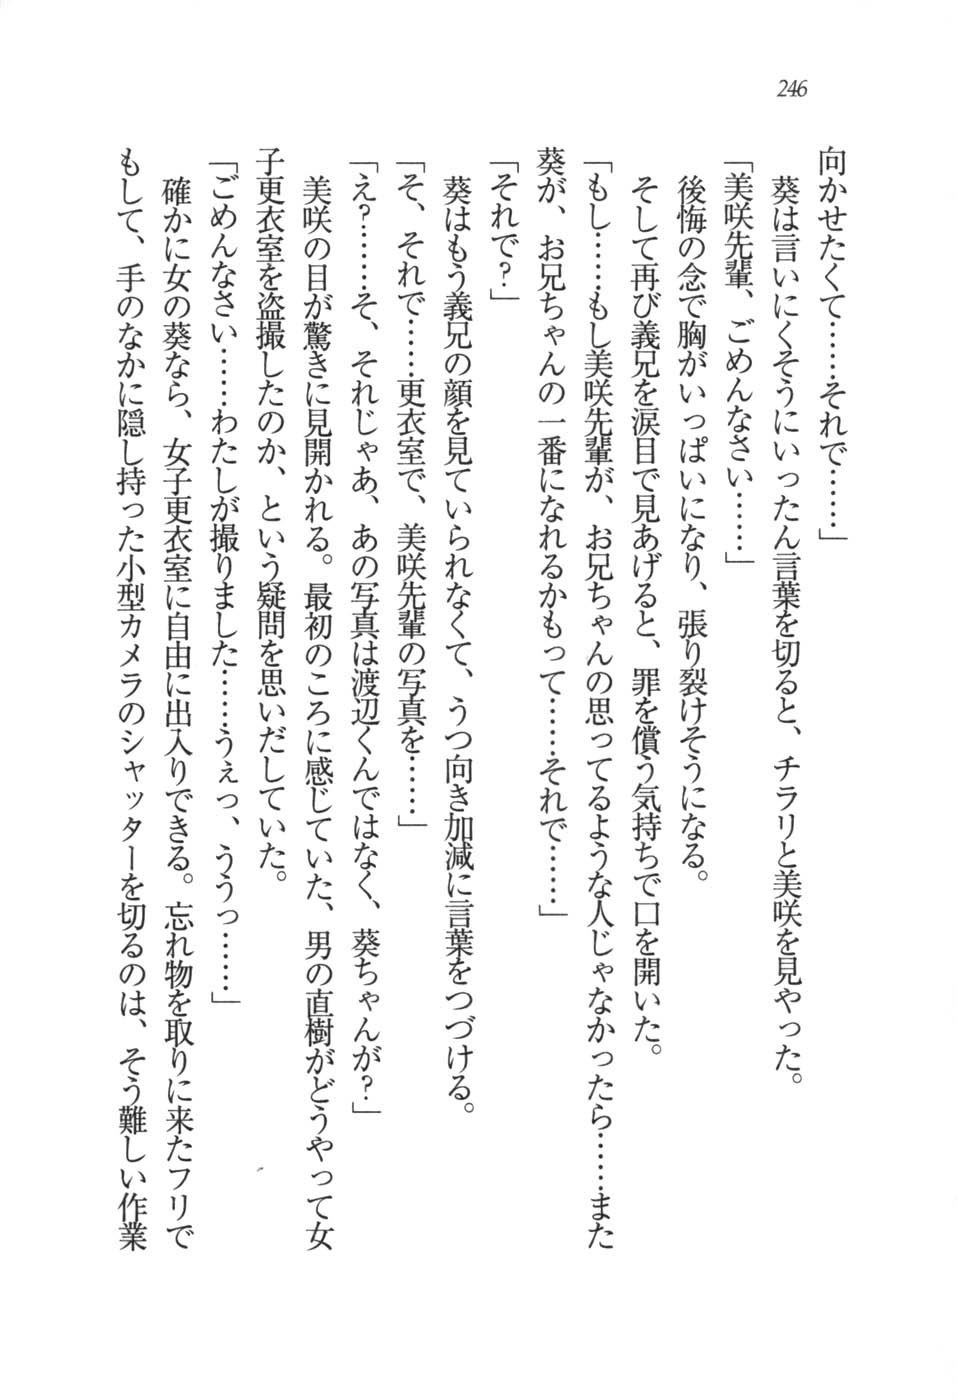 246
向かせたくて……それで……」
葵は言いにくそうにいったん言葉を切ると、チラリと美咲を見やった。
「美咲先輩、ごめんなさい……」
後悔の念で胸がいっぱいになり、張り裂けそうになる。
そして再び義兄を涙目で見あげると、罪を償う気持ちで口を開いた。
「もし……もし美咲先輩が、お兄ちゃんの思ってるような人じゃなかったら……また
葵が、お兄ちゃんの一番になれるかもって……それで……」
「それで？」
葵はもう義兄の顔を見ていられなくて、うつ向き加減に言葉をつづける。
「そ、それで……更衣室で、美咲先輩の写真を……」
「え？……そ、それじゃあ、あの写真は渡辺くんではなく、葵ちゃんが？」
美咲の目が驚きに見開かれる。最初のころに感じていた、男の直樹がどうやって女
子更衣室を盗撮したのか、という疑問を思いだしていた。
「ごめんなさい……わたしが撮りました……うぇっ、ううっ……」
確かに女の葵なら、女子更衣室に自由に出入りできる。忘れ物を取りに来たフリで
もして、手のなかに隠し持った小型カメラのシャッターを切るのは、そう難しい作業